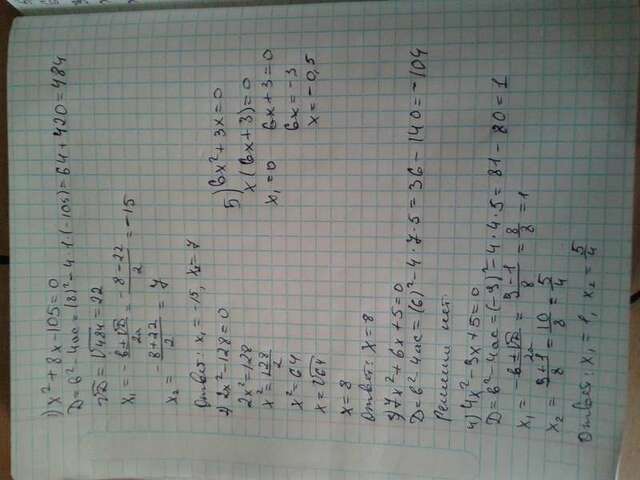 1) x² + 8x - 105 = 0
D = b² - 4ac = (8)² - 4·1·(-105) = 64 + 420 = 484
√D = √484 = 22
x₁ = -b±√D/2a = -8-22/2 = -15
x₂ = -8+22/2 = 7
Ответ: x₁ = -15, x₂ = 7
2) 2x² - 128 = 0
2x² = 128
x² = 128/2
x² = 64
x = √64
x = 8
Ответ: x = 8
3) 7x² + 6x + 5 = 0
D = b² - 4ac = (6)² - 4·7·5 = 36 - 140 = -104
Решений нет.
4) 4x² - 9x + 5 = 0
D = b² - 4ac = (-9)² - 4·4·5 = 81 - 80 = 1
x₁ = -b±√D/2a = 9-1/8 = 8/8 = 1
x₂ = 9+1/8 = 10/8 = 5/4
Ответ: x₁ = 1, x₂ = 5/4
5) 6x² + 3x = 0
x(6x + 3) = 0
x₁ = 0 6x + 3 = 0
6x = -3
x = -0,5